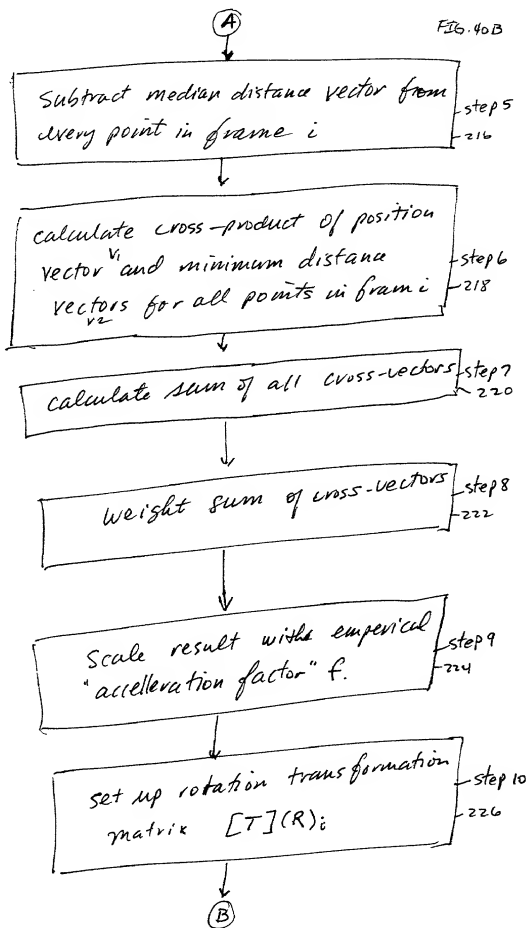 A
FIG. 40B
Subtract median distance vector from
every point in frame i
step 5
216
calculate cross-product of position
vector v1 and minimum distance
vectors v2 for all points in fram i
step 6
218
calculate sum of all cross-vectors
step 7
220
weight sum of cross-vectors
step 8
222
Scale result with emperical
"accelleration factor" f.
step 9
224
set up rotation transformation
matrix [T](R)i
step 10
226
B